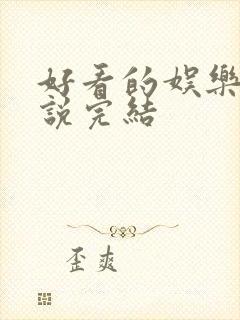 好看的娱樂
說完結
歪爽